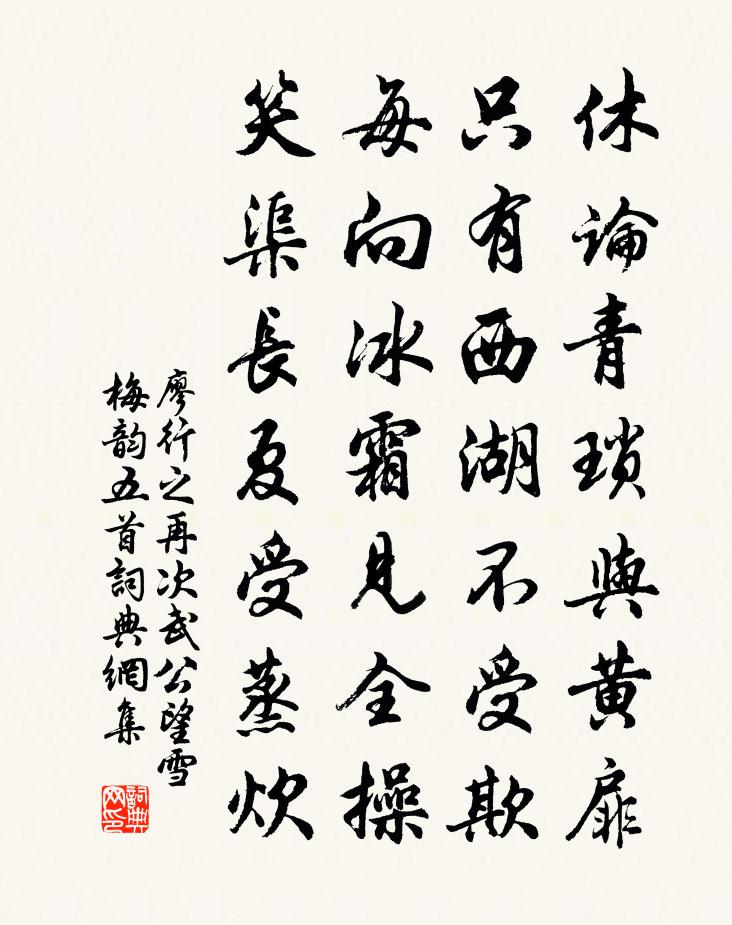 休論青瑣與黃扉
只有西湖不受欺
每向冰霜見全操
笑渠長夏受蒸炊
廖行之再次武公望雪
梅韵五首詞典網集
詞典
网印